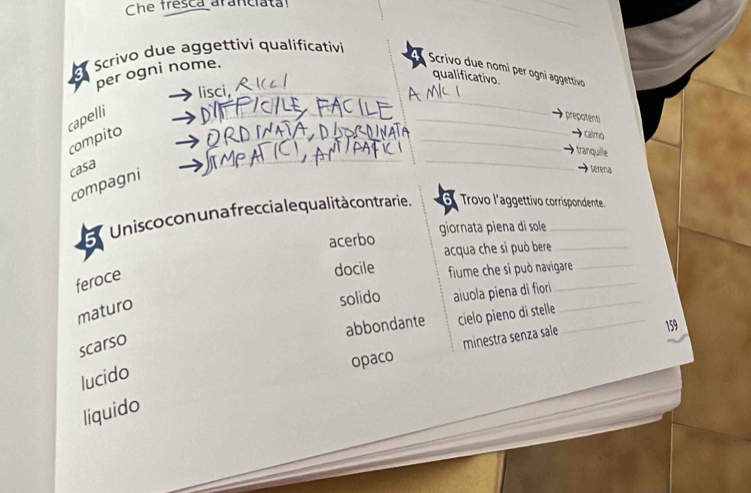 Che fresca aranciata!
3 Scrivo due aggettivi qualificativi
per ogni nome.
capelli → lisci, RICCI
compito → DIFFICILE, FACILE
casa → ORDINATA, DISORDINATA
compagni → SIMPATICI, ANTIPATICI
4 Scrivo due nomi per ogni aggettivo
qualificativo.
AMICI
→ prepotenti
→ calmo
→ tranquille
→ serena
5 Uniscoconunafreccialequalitàcontrarie.
feroce
maturo
scarso
lucido
liquido
acerbo
docile
solido
abbondante
opaco
6 Trovo l'aggettivo corrispondente.
giornata piena di sole
acqua che si può bere
fiume che si può navigare
aiuola piena di fiori
cielo pieno di stelle
minestra senza sale
159